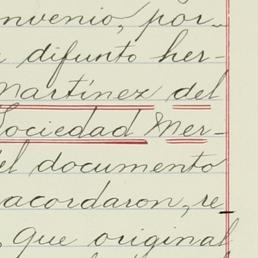 nvenio, por-
difunto her-
Martínez del
Sociedad Mer-
el documento
acordaron, re-
que original